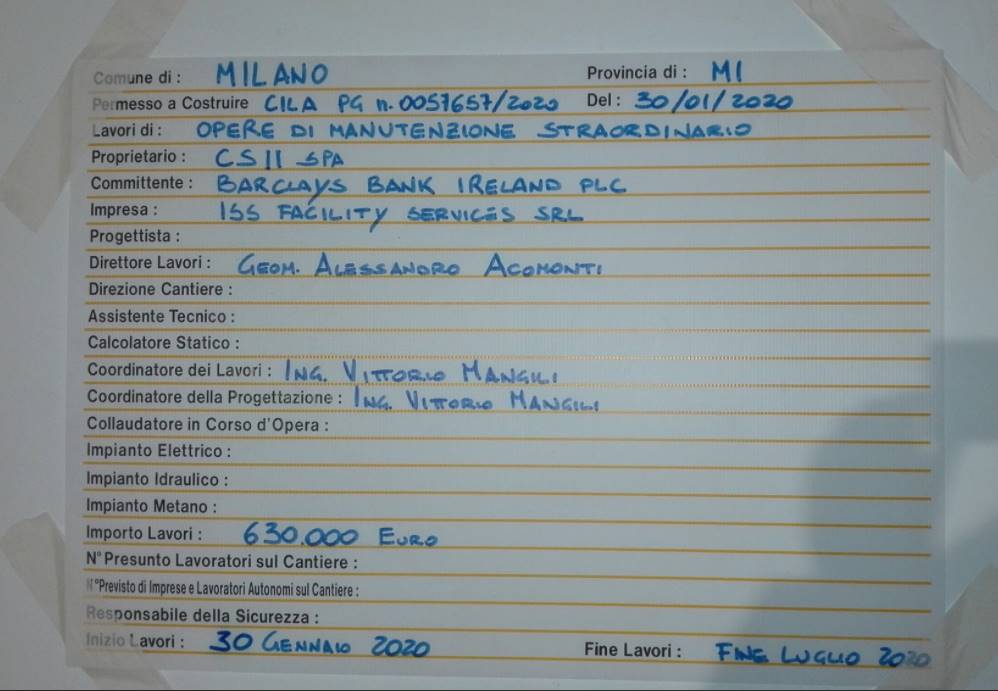 Comune di : MILANO Provincia di : MI
Permesso a Costruire CILA PG n. 0057657/2020 Del : 30/01/2020
Lavori di : OPERE DI MANUTENZIONE STRAORDINARIO
Proprietario : CSII SPA
Committente : BARCLAYS BANK IRELAND PLC
Impresa : ISS FACILITY SERVICES SRL
Progettista :
Direttore Lavori : GEOM. ALESSANDRO ACOMONTI
Direzione Cantiere :
Assistente Tecnico :
Calcolatore Statico :
Coordinatore dei Lavori : ING. VITTORIO MANGILI
Coordinatore della Progettazione : ING. VITTORIO MANGILI
Collaudatore in Corso d'Opera :
Impianto Elettrico :
Impianto Idraulico :
Impianto Metano :
Importo Lavori : 630.000 EURO
N° Presunto Lavoratori sul Cantiere :
N° Previsto di Imprese e Lavoratori Autonomi sul Cantiere :
Responsabile della Sicurezza :
Inizio Lavori : 30 GENNAIO 2020 Fine Lavori : FINE LUGLIO 2020